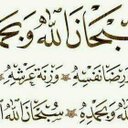 سُبْحَانَ اللهِ وَبِحَمْ
رِضَا نَفْسِهِ وَزِنَةَ عَرْشِهِ
وَبِحَمْدِهِ سُبْحَانَ اللهِ